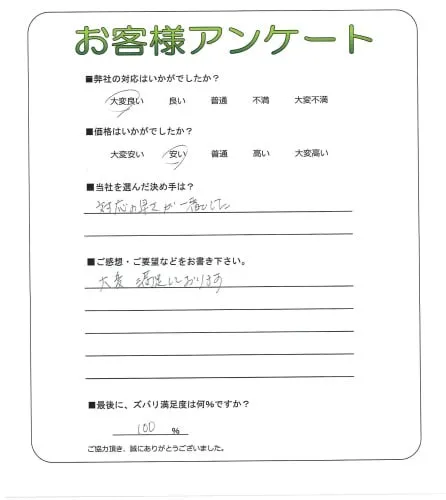 お客様アンケート
■弊社の対応はいかがでしたか？
大変良い 良い 普通 不満 大変不満
■価格はいかがでしたか？
大変安い 安い 普通 高い 大変高い
■当社を選んだ決め手は？
対応の早さが一番でした
■ご感想・ご要望などをお書き下さい。
大変満足しております
■最後に、ズバリ満足度は何%ですか？
100 %
ご協力頂き、誠にありがとうございました。